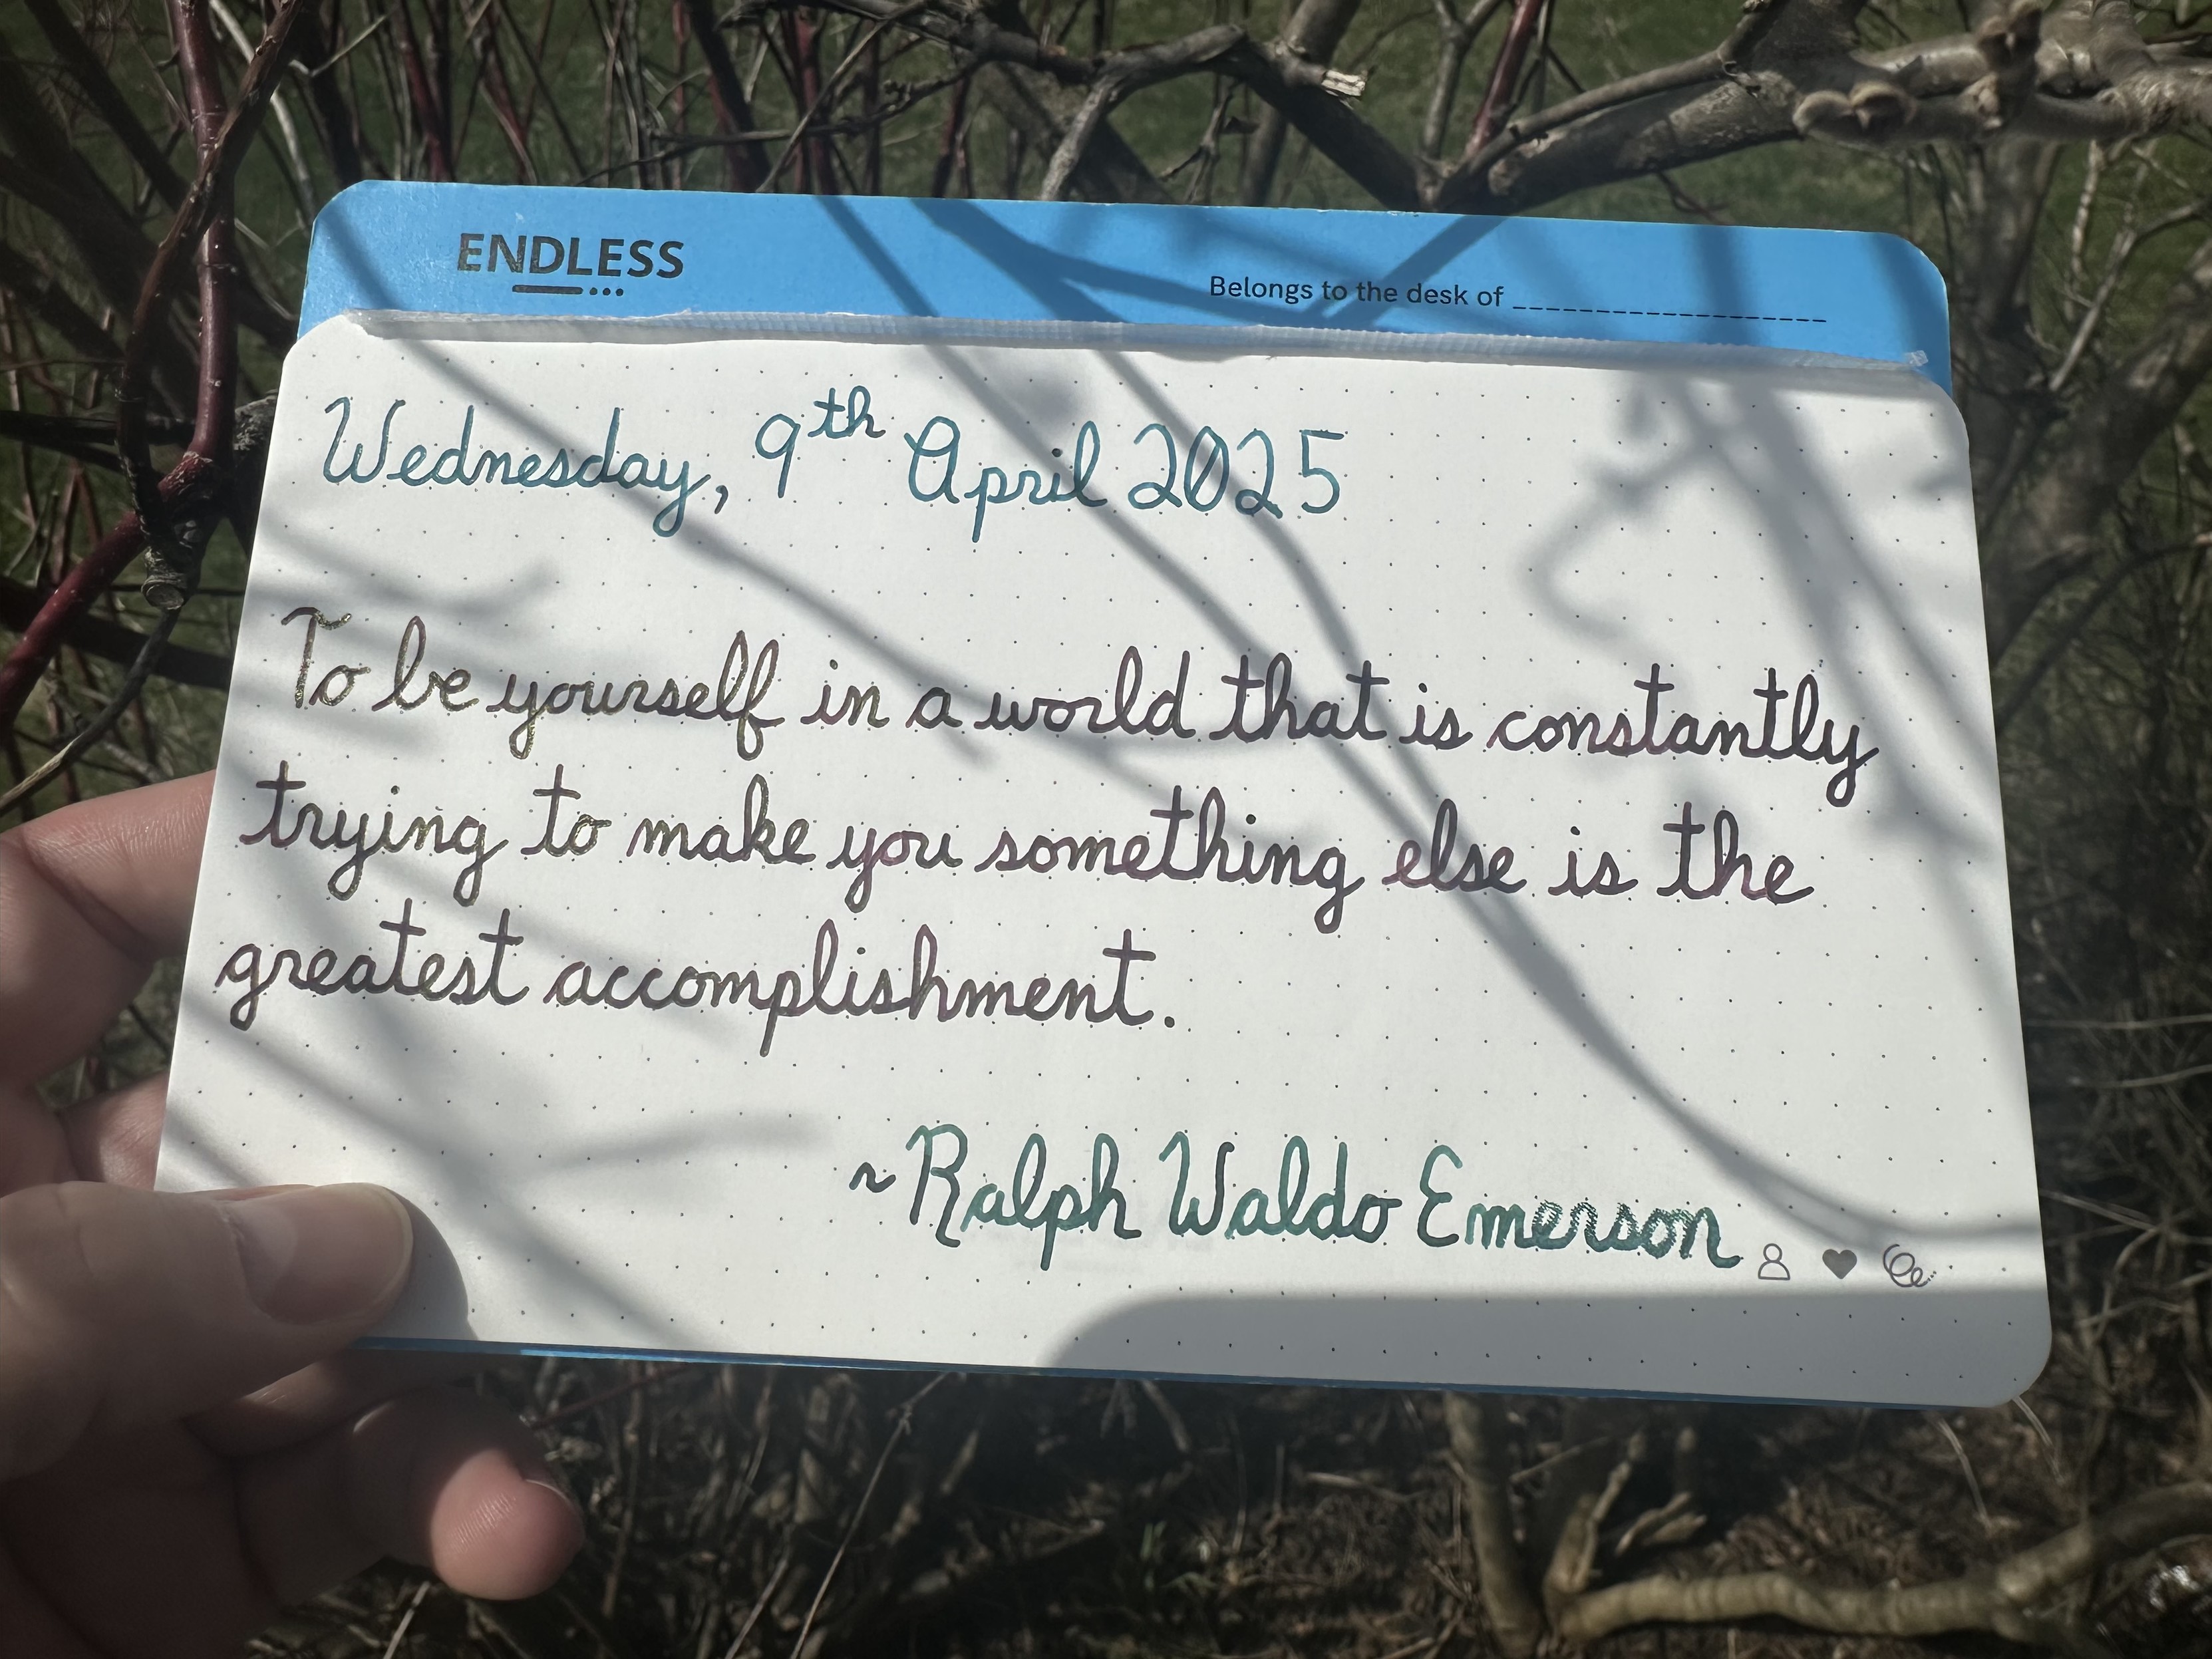 ENDLESS
Belongs to the desk of
Wednesday, 9th April 2025
To be yourself in a world that is constantly
trying to make you something else is the
greatest accomplishment.
~Ralph Waldo Emerson